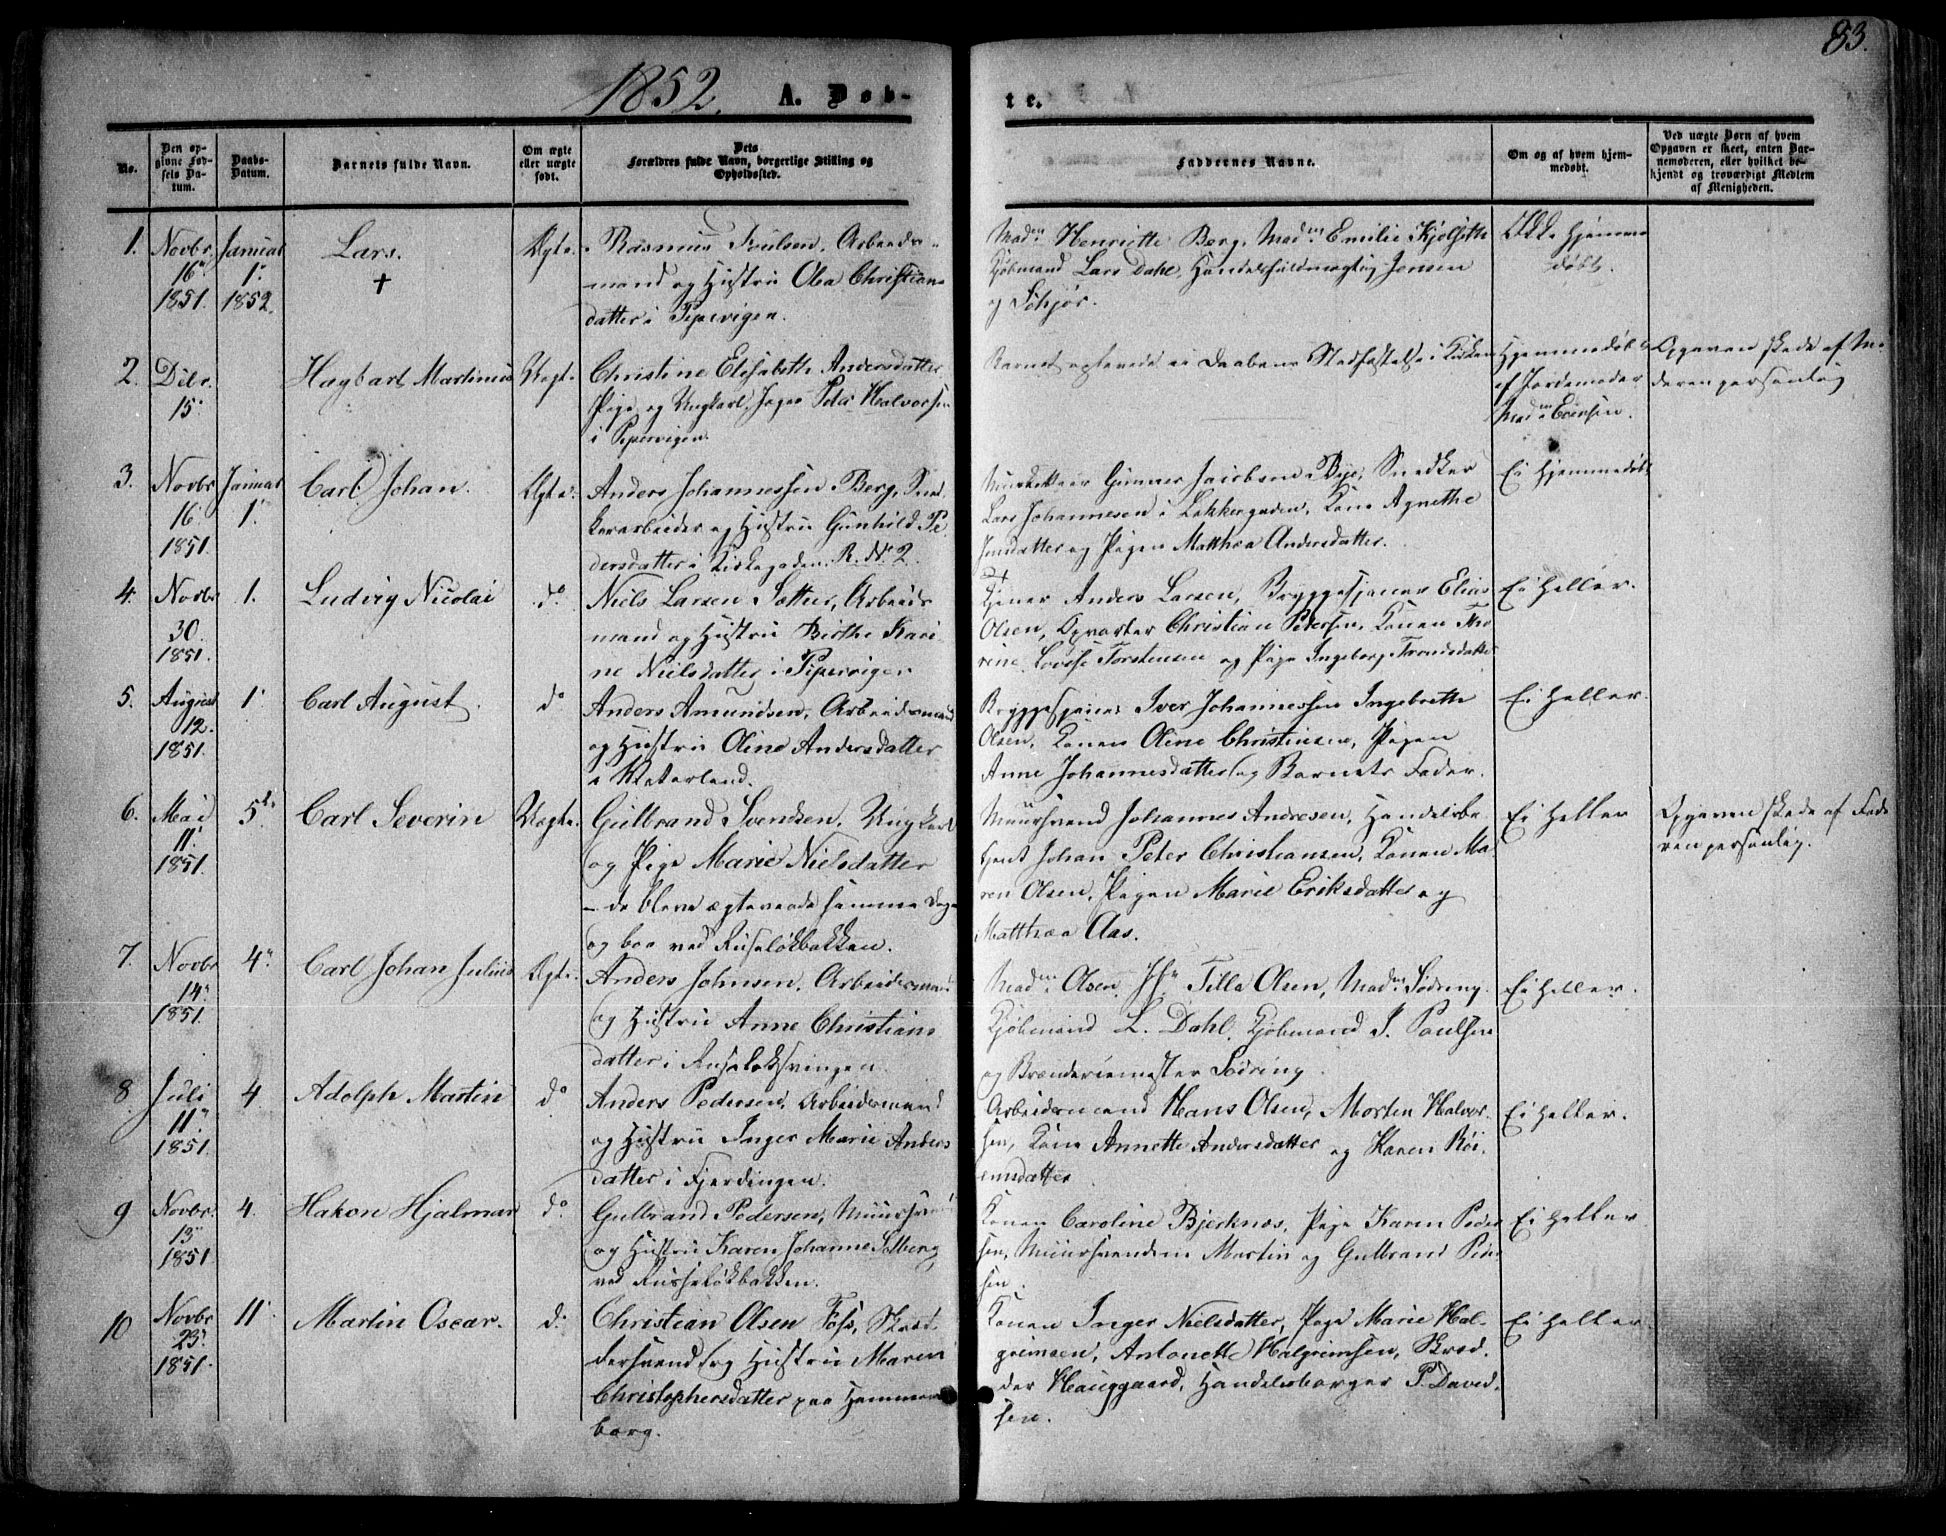 83.
1852. A. Døb-
te.
No.
Den op-
givne Fød-
sels Da-
tum.
Daabs-
Datum.
Barnets fulde Navn.
Om ægte
eller uægte
født.
Dets
Forældres fulde Navn, borgerlige Stilling og
Opholdssted.
Faddernes Navne.
Om og af hvem hjem-
medøbt.
Ved uægte Børn af hvem
Opgaven er skeet, enten Bar-
nemoderen, eller hvilket be-
kjendt og troværdigt Medlem
af Menigheden.
1. Novbr 16 1851. Januar 1. 1852. Lars. + Ægte.
Rasmus Poulsen, Arbeids-
mand og Hustru Oba Christian-
datter i Pipervigen.
Madm Henriette Berg, Madm Emilie Kjølseth
Kjøbmand Lars Dahl, Handelsfuldmægtig Jensen
og Schjør.
Ikke hjemme-
døbt.
2. Dcbr. 15. Hagbart Martinus Uægte.
Christine Elisabeth Andersdatter
Pige og Ungkarl, Jæger Peder Halvorsen
i Pipervigen.
Barnet oplevede ei Daabens Stadfæstelse i Kirken
Hjemmedøbt
af Jordemoder
Madm Evensen.
Opgaven skede af Mo-
deren personlig
3. Novbr 16. 1851. Januar 1. Carl Johan. Ægte.
Anders Johannessen Berg, Sned-
kerarbeider og Hustru Gunhild Pe-
dersdatter i Kirkegaden R. No 2.
Gunner Jacobsen Bye, Snedker
Lars Johannesen i Lakkegaden, Kone Agnethe
Jensdatter og Pigen Matthea Andersdatter.
Ei hjemmedøbt
4. Novbr 30. 1851. 1. Ludvig Nicolai do
Niels Larsen Sætter, Arbeids-
mand og Hustru Birthe Kari-
ne Nielsdatter i Pipervigen
Tjener Anders Larsen, Bryggesjouer Elias
Olsen, Opvarter Christian Pedersen, Konen Tho-
rine Lovise Torstensen og Pige Ingeborg Trondsdatter
Ei heller.
5. August 12. 1851. 1. Carl August. do
Anders Amundsen, Arbeidsmand
og Hustru Oline Andersdatter
i Vaterland.
Bryggesjouer Iver Johannessen Ingebreth
Olsen, Konen Oline Christensen, Pigen
Anne Johannesdatter og Barnets Fader.
Ei heller.
6. Mai 11. 1851. 5te Carl Severin Uægte.
Gulbrand Svendsen, Ungkarl
og Pige Marie Nielsdatter
– de bleve ægteviede samme Dag
og boe ved Ruseløkbakken.
Muursvend Johannes Andresen, Handelsbe-
tjent Johan Peter Christiansen, Konen Ma-
ren Olsen, Pigen Marie Eriksdatter og
Matthea Aas.
Ei heller
Opgaven skede af Fade-
ren personlig.
7. Novbr 14. 1851. 4. Carl Johan Julius Ægte.
Anders Johnsen, Arbeidsmand
og Hustru Anne Christians-
datter i Ruseløksvingen.
Madm Olsen, Jfr Tilla Olsen, Madm Sødring,
Kjøbmand L. Dahl, Kjøbmand J. Paulsen
og Brænderiemester Sødring.
Ei heller.
8 Juli 11. 1851. 4. Adolph Martin do
Anders Pedersen, Arbeidsmand
og Hustru Inger Marie Anders-
datter i Fjerdingen.
Arbeidsmand Hans Olsen, Morten Halvor-
sen, Kone Annette Andersdatter og Karen Rei-
ersdatter
Ei heller.
9 Novbr. 13 1851 4. Hakon Hjalmar do
Gulbrand Pedersen, Muursvend
og Hustru Karen Johanne Solberg
ved Russeløkbakken.
Konen Caroline Bjerknæs, Pige Karen Peder-
sen, Muursvendene Martin og Gulbrand Peder-
sen.
Ei heller
10 Novbr 23. 1851. 11. Martin Oscar. do
Christian Olsen Foss, Skræd-
dersvend og Hustru Maren
Christophersdatter paa Hammers-
borg.
Konen Inger Nielsdatter, Pige Marie Hal-
grimsen, Antonette Halgrimsen, Skræd-
der Hauggaard, Handelsborger P. David-
sen.
Ei heller